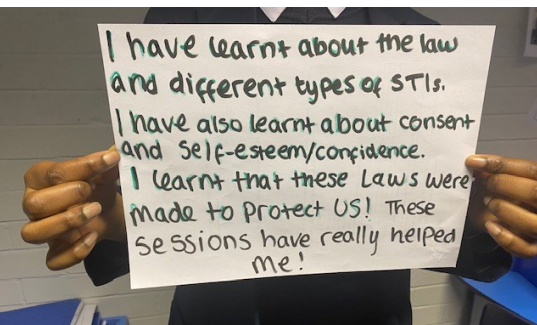 I have learnt about the law
and different types of STIs.
I have also learnt about consent
and Self-esteem/confidence.
I learnt that these Laws were
made to Protect US! These
sessions have really helped
me!